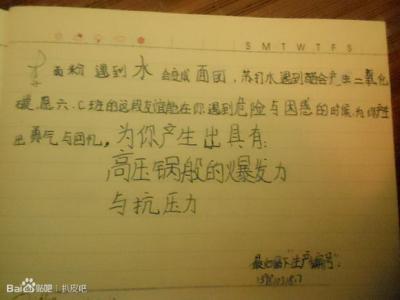 S M T W T F S
面粉遇到水会变成面团，苏打水遇到醋会产生二氧化
碳，愿六.C班的这段友谊能在你遇到危险与困惑的时候，为你产生
出勇气与团札，为你产生出具有：
高压锅般的爆发力
与抗压力
最后留下"生产编号"：
Bai贴吧 | 扒皮吧